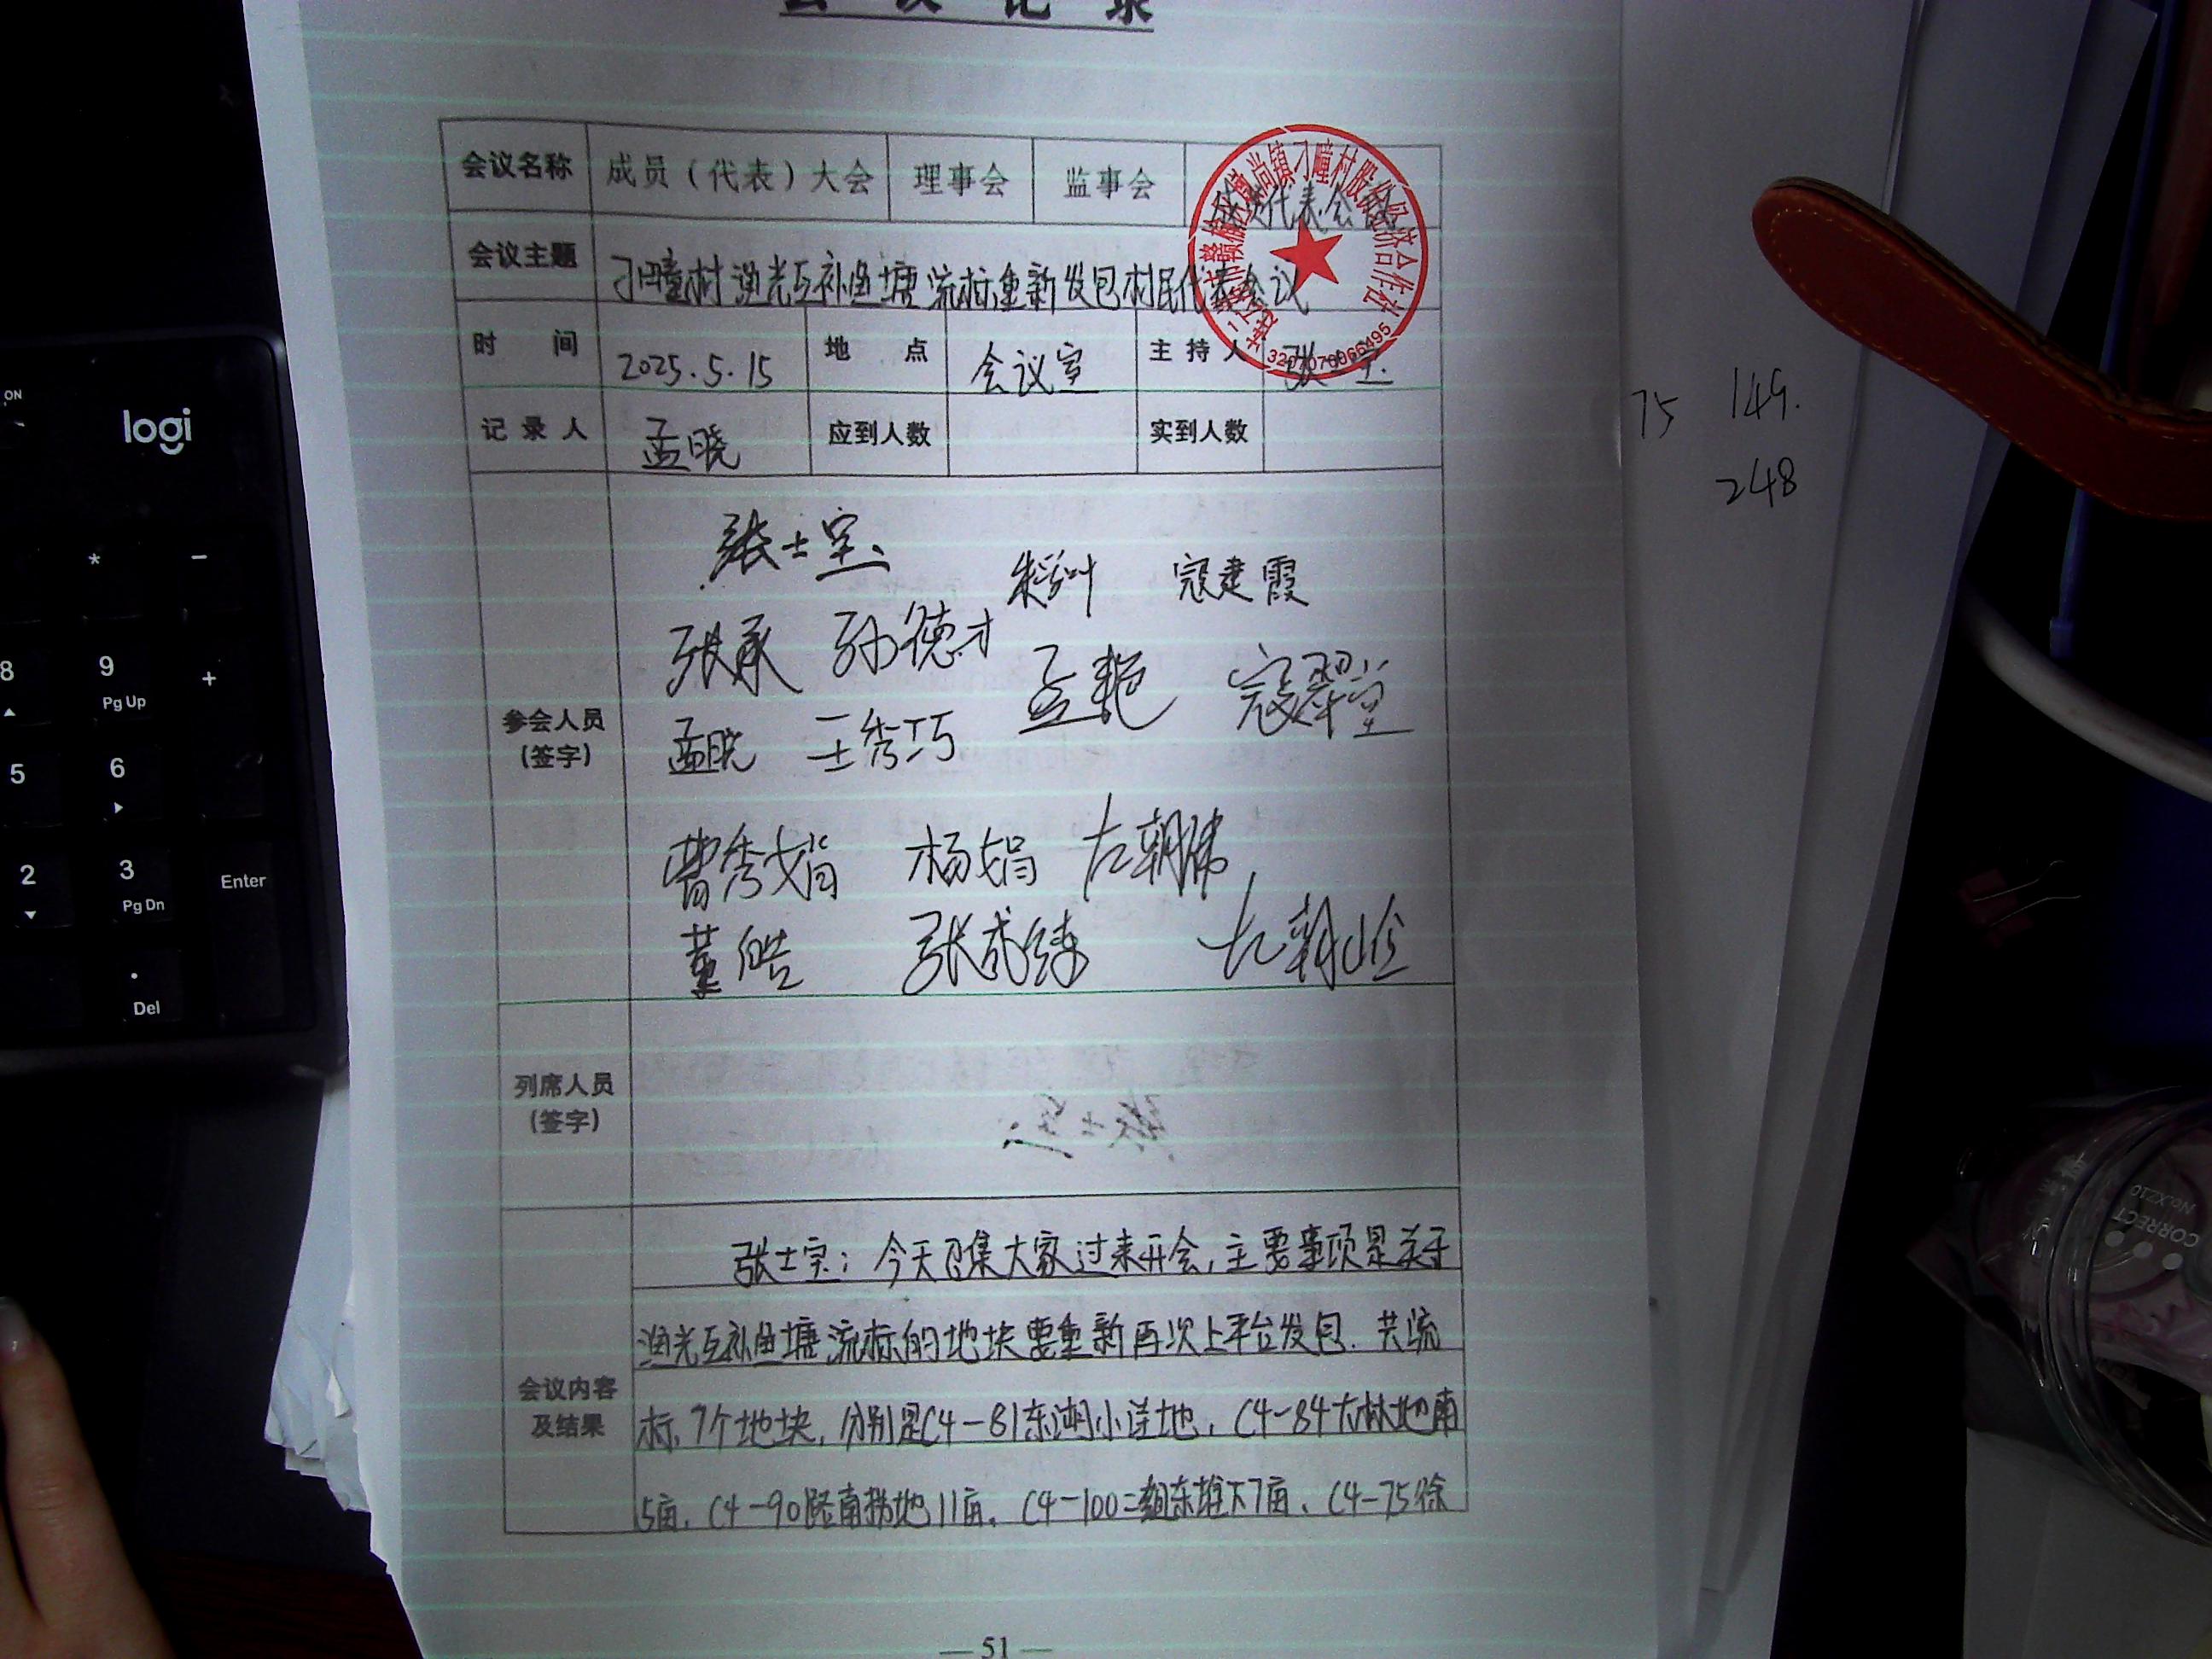 会议记录
会议名称 成员（代表）大会 理事会 监事会 村民代表会议
会议主题 刁疃村渔光互补鱼塘流标重新发包村民代表会议
时间 2025.5.15 地点 会议室 主持人 张士宝
记录人 孟晓 应到人数 实到人数
赣榆区墩尚镇刁疃村股份经济合作社
3207070066495
参会人员
(签字)
张士宝
寇建霞
张承 孙德才
孟艳 寇翠堂
孟晓 王秀巧
曹秀娟 杨娟 左朝伟
董皓 张成绪
列席人员
(签字)
会议内容
及结果
张士宝：今天召集大家过来开会，主要事项是关于
渔光互补鱼塘流标的地块要重新再次上平台发包．共流
标，7个地块，分别是C4-81东湖小洼地，C4-84大林地南
15亩，C4-90路南拐地11亩、C4-100二组东堆下7亩、C4-75徐
— 51 —
75 149.
248
ON
logi
* -
8 9 +
Pg Up
5 6
2 3 Enter
Pg Dn
.
Del
CORRECT
No.XZ10